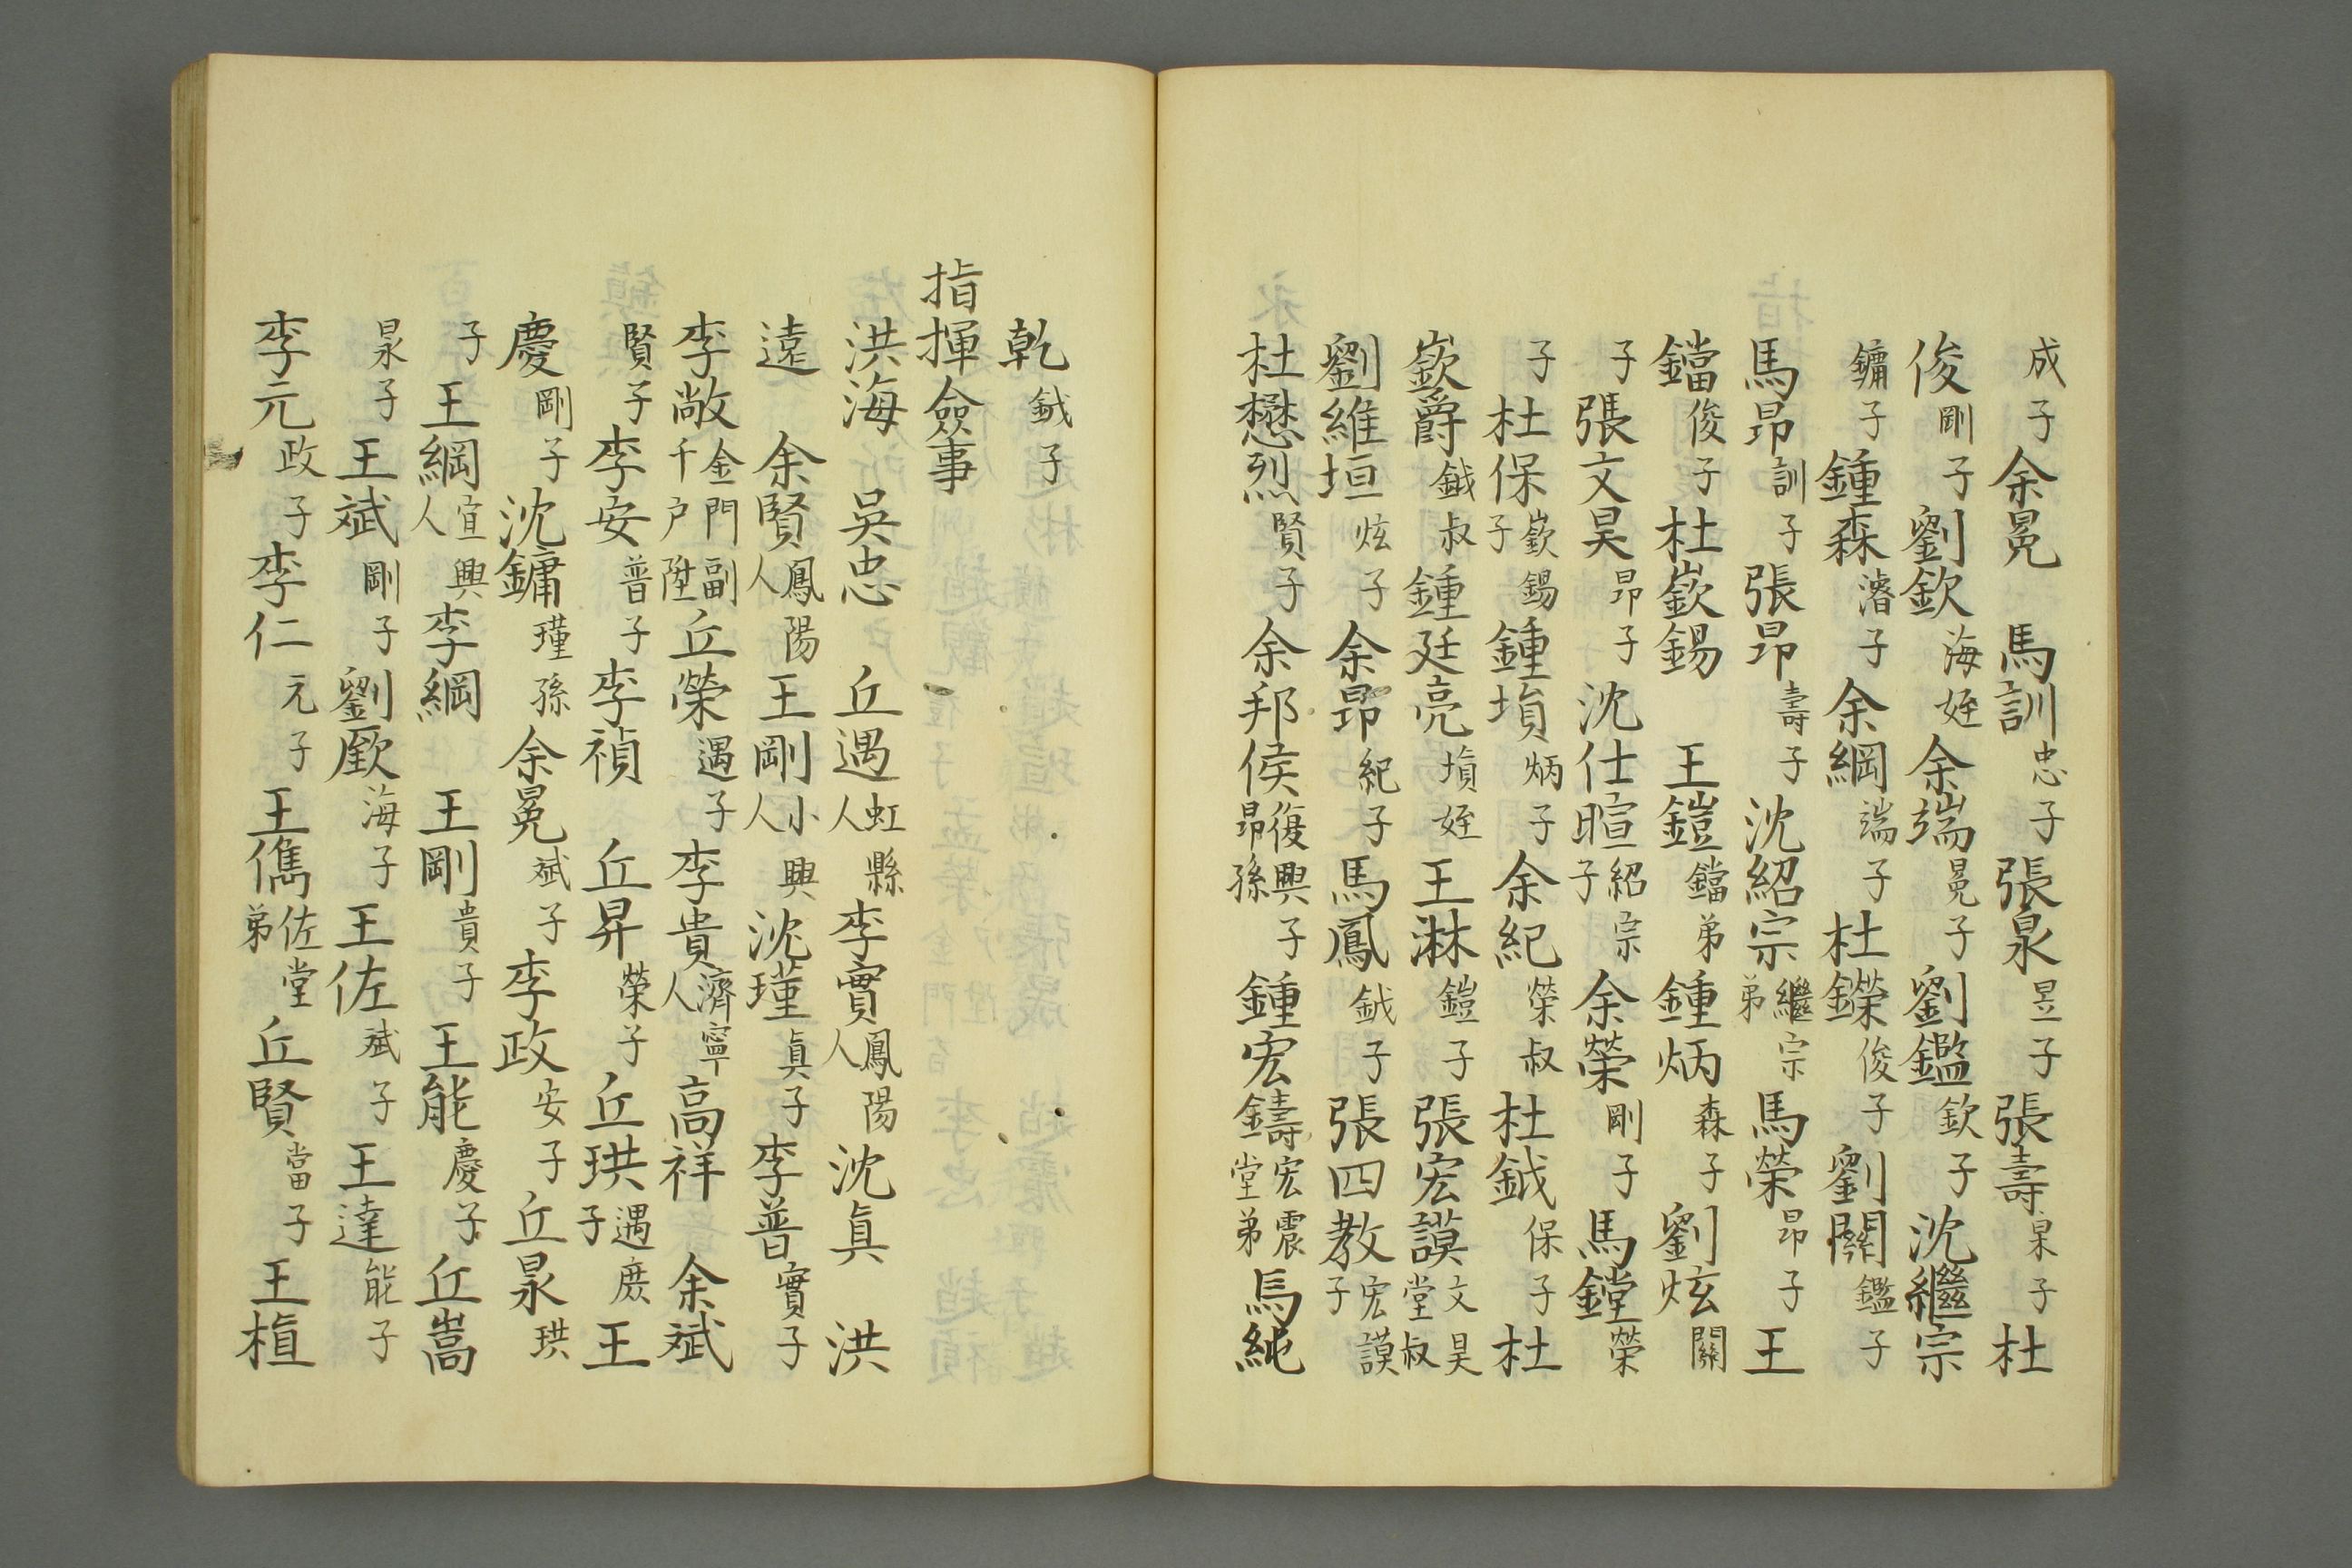 成子余冕　馬訓忠子張泉昱子張壽杲子杜
俊剛子劉欽海姪余端冕子劉鑑欽子沈繼宗
鏞子鍾森濬子余綱端子杜鑅俊子劉關鑑子
馬昂訓子張昂壽子沈紹宗繼宗弟馬榮昂子王
鐺俊子杜嶔錫　王鎧鐺弟鍾炳森子劉炫關
子張文昊昂子沈仕暄紹宗子余榮剛子馬鏜榮
子杜保嶔錫子鍾塤炳子余紀榮叔杜鉞保子杜
嶔爵鉞叔鍾廷亮塤姪王淋鎧子張宏謨文昊堂叔
劉維垣炫子余昂紀子馬鳳鉞子張四教宏謨子
杜懋烈賢子余邦侯復興子昂孫鍾宏鑄宏震堂弟馬純
乾鉞子
指揮僉事
洪海　吳忠　丘遇虹縣人李實鳳陽人沈眞　洪
遠　余賢鳳陽人王剛小興人沈瑾眞子李普實子
李敞金門副千户陞丘榮遇子李貴濟寧人高祥　余斌
賢子李安普子李禎　丘昇榮子丘珙遇庶子王
慶剛子沈鏞瑾孫余冕斌子李政安子丘泉珙
子王綱宣興人李綱　王剛貴子王能慶子丘嵩
泉子王斌剛子劉嶔海子王佐斌子王達能子
李元政子李仁元子王儁佐堂弟丘賢當子王植